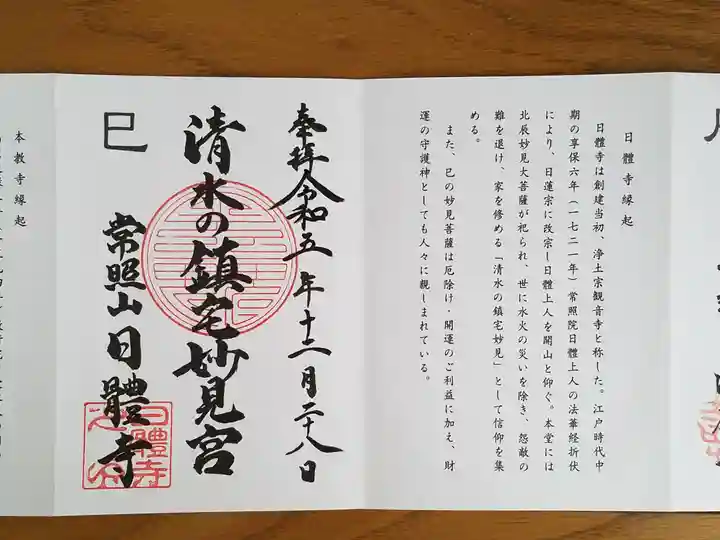 日體寺縁起
日體寺は創建当初、浄土宗観音寺と称した。江戸時代中
期の享保六年(一七二一年)常照院日體上人の法華経折伏
により、日蓮宗に改宗し日體上人を開山と仰ぐ。本堂には
北辰妙見大菩薩が祀られ、世に水火の災いを除き、怨敵の
難を退け、家を修める「清水の鎮宅妙見」として信仰を集
める。
また、巳の妙見菩薩は厄除け・開運のご利益に加え、財
運の守護神としても人々に親しまれている。
奉拝 令和五年十二月二十八日
清水の鎮宅妙見宮
巳
常照山日體寺
日體寺
本教寺縁起